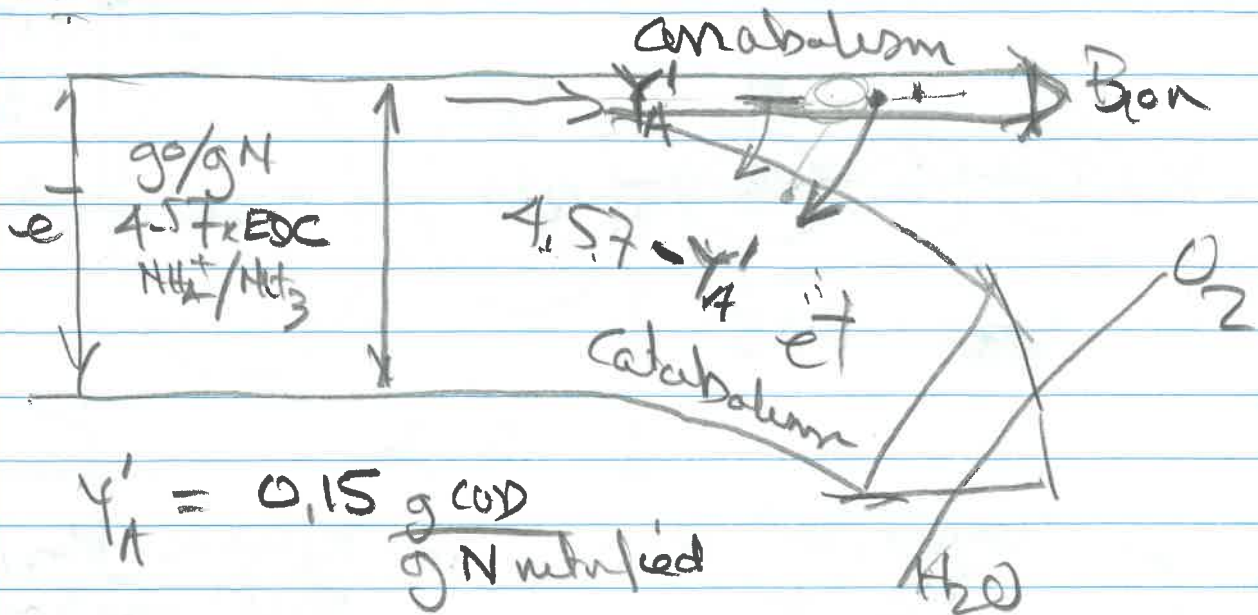 anabolism
Y'A
Bion
gO/gN
e-
4.57 x EDC
NH4+/NH3
4.57 - Y'A
"e-"
Catabolism
O2
H2O
Y'A = 0,15 g COD
g N nitrified